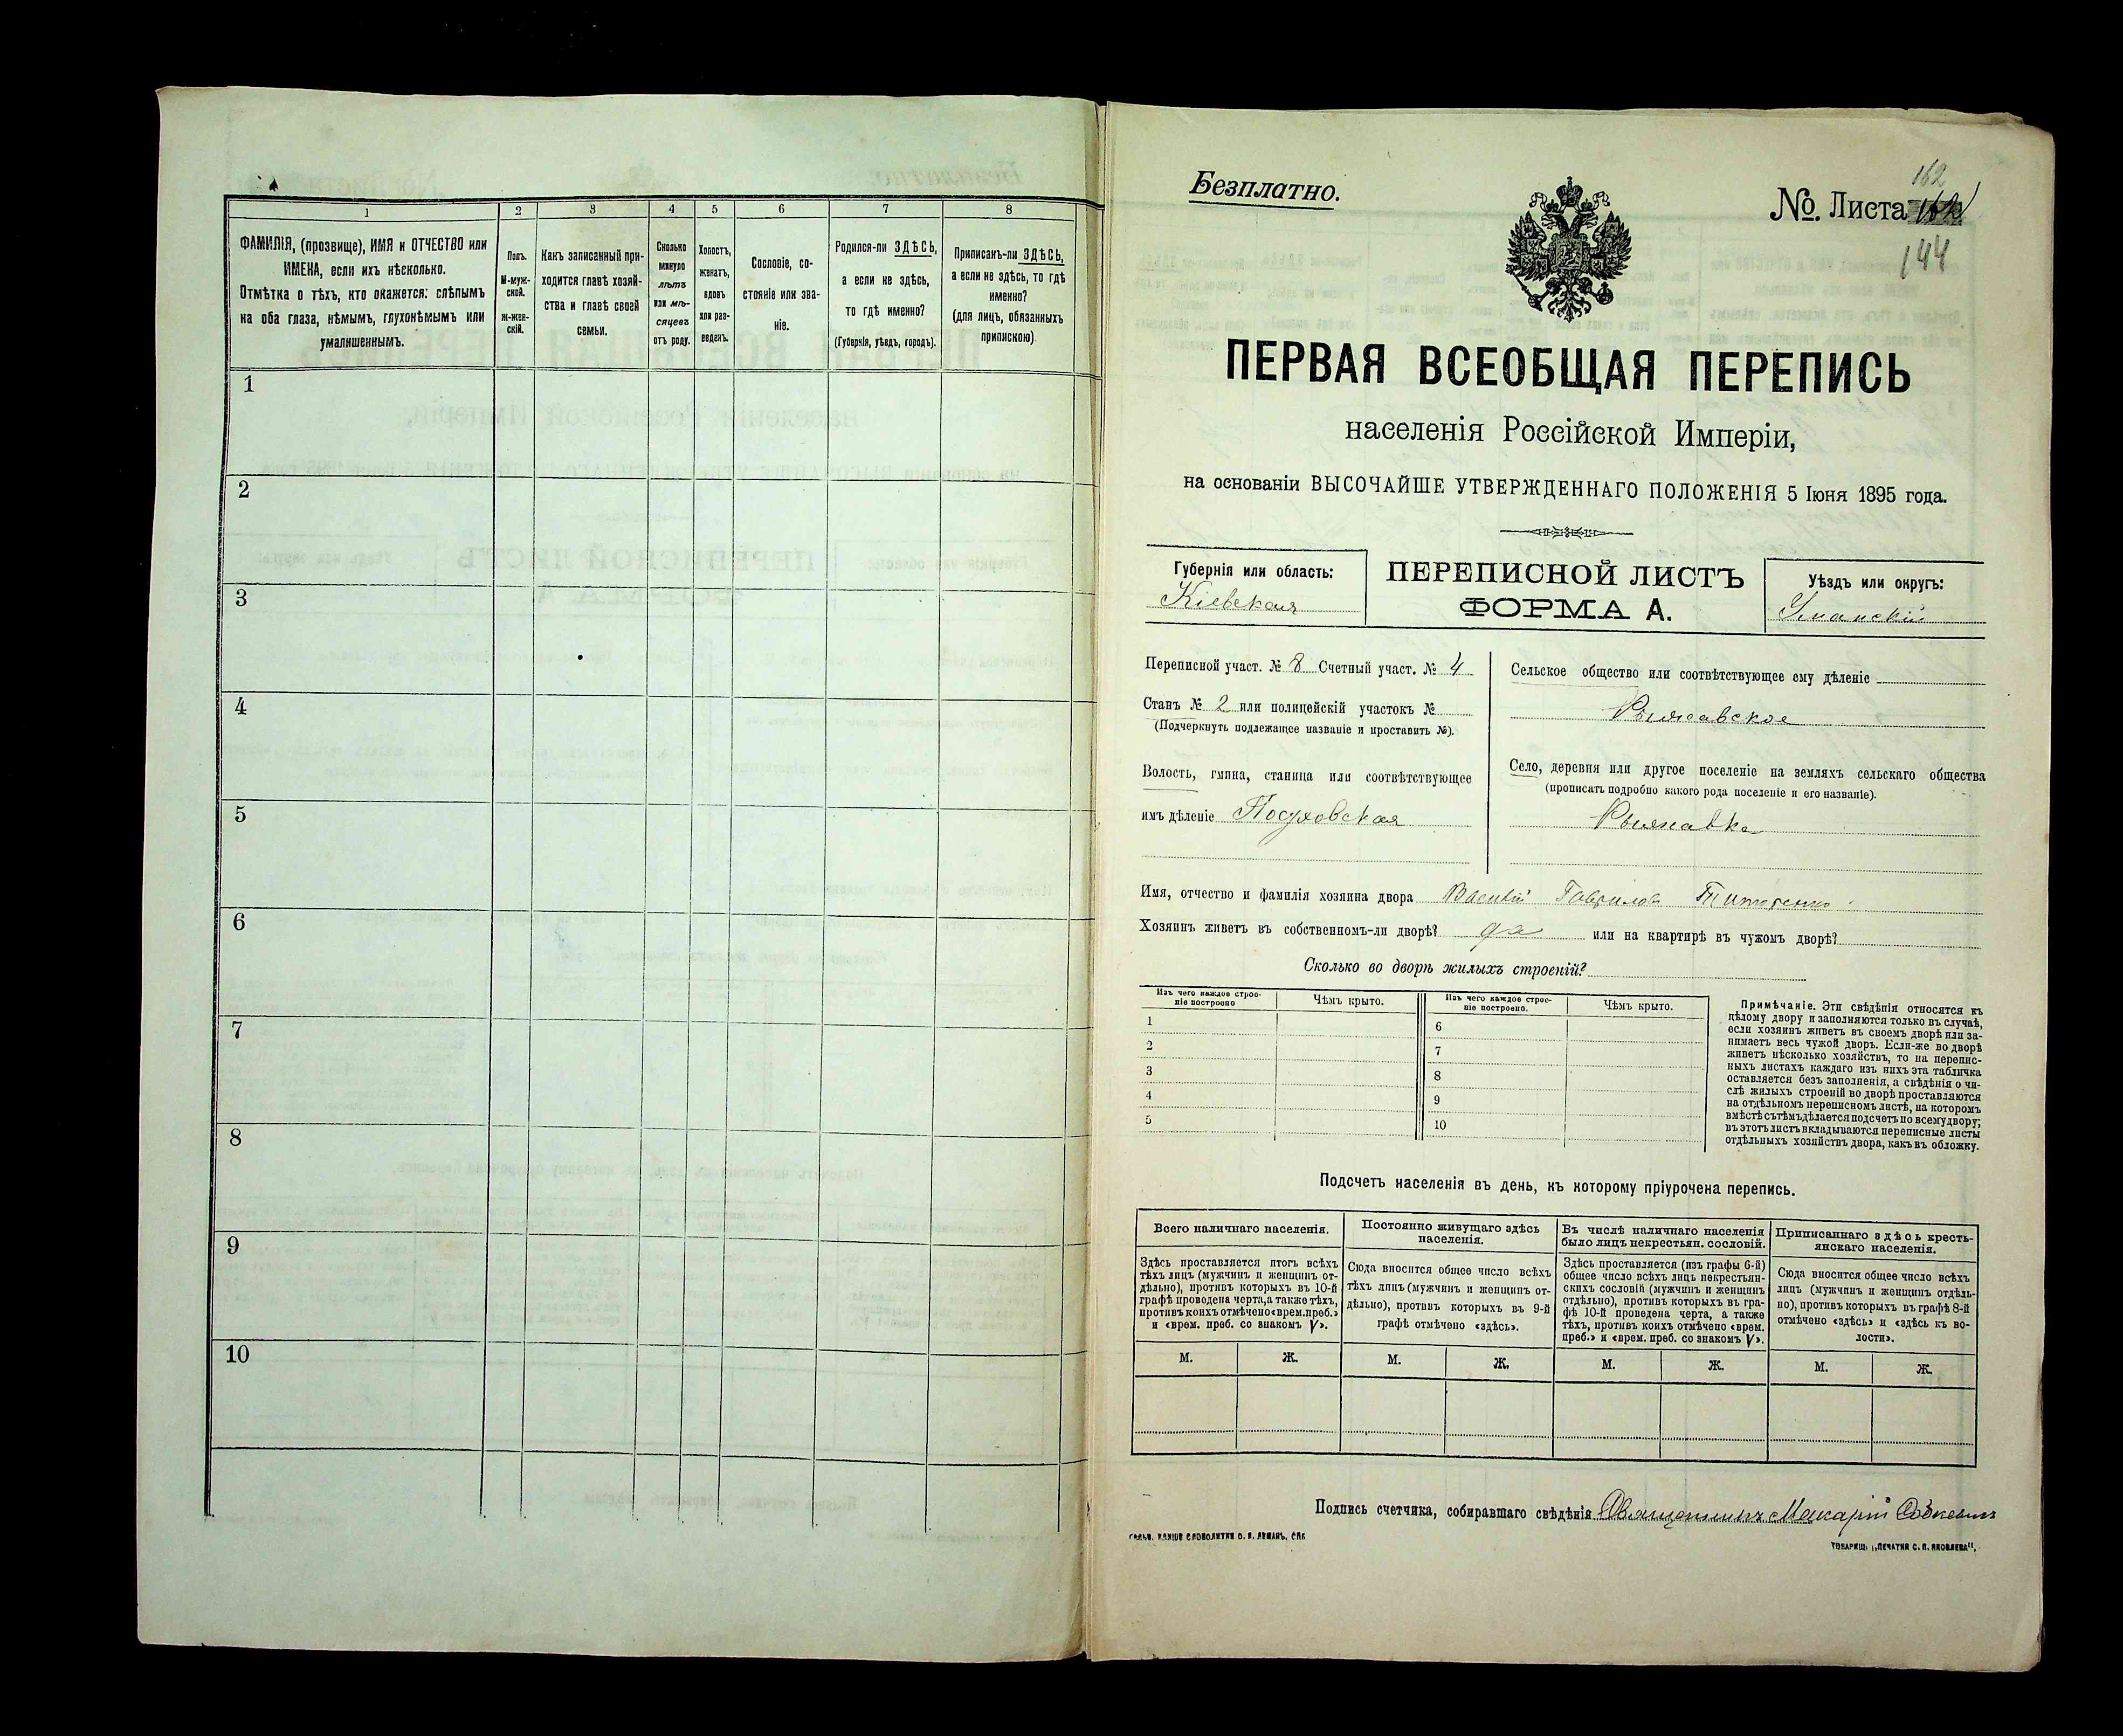 1
2
3
4
5
6
7
8
ФАМИЛІЯ, (прозвище), ИМЯ и ОТЧЕСТВО или
ИМЕНА, если ихъ нѣсколько.
Отмѣтка о тѣхъ, кто окажется: слѣпымъ
на оба глаза, нѣмымъ, глухонѣмымъ или
умалишеннымъ.
Полъ.
М-муж-
ской.
Ж-жен-
скій.
Какъ записанный при-
ходится главѣ хозяй-
ства и главѣ своей
семьи.
Сколько
минуло
лѣтъ
или мѣ-
сяцевъ
отъ роду.
Холостъ,
женатъ,
вдовъ
или раз-
веденъ.
Сословіе, со-
стояніе или зва-
ніе.
Родился-ли ЗДѢСЬ,
а если не здѣсь,
то гдѣ именно?
(Губернія, уѣздъ, городъ).
Приписанъ-ли ЗДѢСЬ,
а если не здѣсь, то гдѣ
именно?
(для лицъ, обязанныхъ
припискою)
1
2
3
4
5
6
7
8
9
10
162
Безплатно.
№. Листа
144
ПЕРВАЯ ВСЕОБЩАЯ ПЕРЕПИСЬ
населенія Россійской Имперіи,
на основаніи ВЫСОЧАЙШЕ УТВЕРЖДЕННАГО ПОЛОЖЕНІЯ 5 Іюня 1895 года.
Губернія или область:
Кіевская
ПЕРЕПИСНОЙ ЛИСТЪ
ФОРМА А.
Уѣздъ или округъ:
Уманскій
Переписной участ. № 8 Счетный участ. № 4
Станъ № 2 или полицейскій участокъ №
(Подчеркнуть подлежащее названіе и проставить №).
Волость, гмина, станица или соотвѣтствующее
имъ дѣленіе Посуховская
Сельское общество или соотвѣтствующее ему дѣленіе
Рыжавское
Село, деревня или другое поселеніе на земляхъ сельскаго общества
(прописать подробно какого рода поселеніе и его названіе).
Рыжавка
Имя, отчество и фамилія хозяина двора Василій Гаврилов Титоренко
Хозяинъ живетъ въ собственномъ-ли дворѣ? да или на квартирѣ въ чужомъ дворѣ?
Сколько во дворѣ жилыхъ строеній?
Изъ чего каждое строе-
ніе построено
Чѣмъ крыто.
Изъ чего каждое строе-
ніе построено.
Чѣмъ крыто.
1
2
3
4
5
6
7
8
9
10
Примѣчаніе. Эти свѣдѣнія относятся къ
цѣлому двору и заполняются только въ случаѣ,
если хозяинъ живетъ въ своемъ дворѣ или за-
нимаетъ весь чужой дворъ. Если-же во дворѣ
живетъ нѣсколько хозяйствъ, то на перепис-
ныхъ листахъ каждаго изъ нихъ эта табличка
оставляется безъ заполненія, а свѣдѣнія о чи-
слѣ жилыхъ строеній во дворѣ проставляются
на отдѣльномъ переписномъ листѣ, на которомъ
вмѣстѣ съ тѣмъ дѣлается подсчетъ по всему двору;
въ этотъ листъ вкладываются переписные листы
отдѣльныхъ хозяйствъ двора, какъ въ обложку.
Подсчетъ населенія въ день, къ которому пріурочена перепись.
Всего наличнаго населенія.
Здѣсь проставляется итогъ всѣхъ
тѣхъ лицъ (мужчинъ и женщинъ от-
дѣльно), противъ которыхъ въ 10-й
графѣ проведена черта, а также тѣхъ,
противъ коихъ отмѣчено «врем. преб.»
и «врем. преб. со знакомъ V».
Постоянно живущаго здѣсь
населенія.
Сюда вносится общее число всѣхъ
тѣхъ лицъ (мужчинъ и женщинъ от-
дѣльно), противъ которыхъ въ 9-й
графѣ отмѣчено «здѣсь».
Въ числѣ наличнаго населенія
было лицъ некрестьян. сословій.
Здѣсь проставляется (изъ графы 6-й)
общее число всѣхъ лицъ некрестьян-
скихъ сословій (мужчинъ и женщинъ
отдѣльно), противъ которыхъ въ гра-
фѣ 10-й проведена черта, а также
тѣхъ, противъ коихъ отмѣчено «врем.
преб.» и «врем. преб. со знакомъ V».
Приписаннаго здѣсь кресть-
янскаго населенія.
Сюда вносится общее число всѣхъ
лицъ (мужчинъ и женщинъ отдѣль-
но), противъ которыхъ въ графѣ 8-й
отмѣчено «здѣсь» и «здѣсь къ во-
лости».
М. Ж. М. Ж. М. Ж. М. Ж.
Подпись счетчика, собиравшаго свѣдѣнія Священникъ Макарій
ТОВАРИЩ. „ПЕЧАТНЯ С. П. ЯКОВЛЕВА".